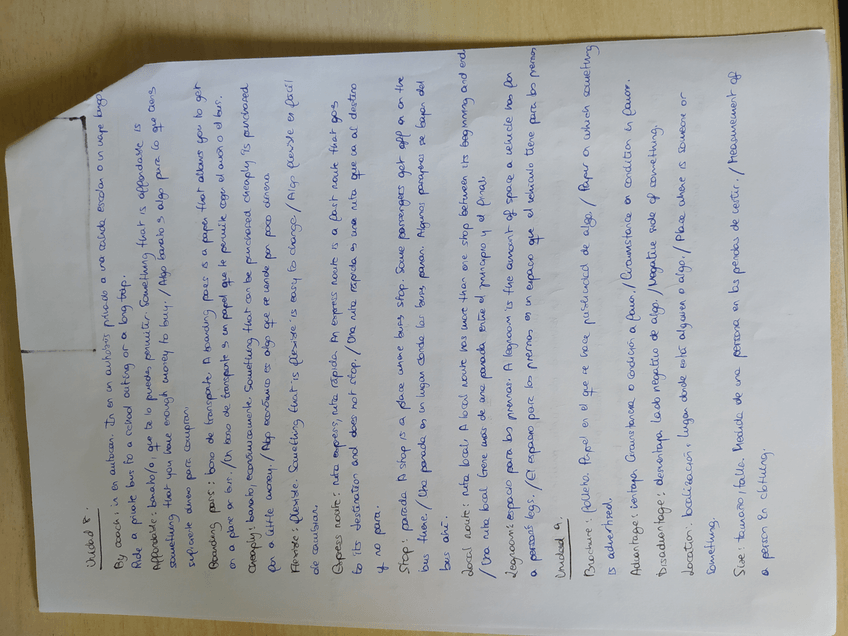 Unidad 8.
By coach: ir en autocar. Ir en un autobús privado a una salida escolar o un viaje largo.
Ride a private bus to a school outing or a long trip.
Affordable: barato/a, que te lo puedes permitir. Something that is affordable is
something that you have enough money to buy. / Algo barato es algo para lo que tienes
suficiente dinero para comprar.
Boarding pass: bono de transporte. A boarding pass is a paper that allows you to get
on a plane or bus. / Un bono de transporte es un papel que te permite coger el avión o el bus.
Cheaply: barato, económicamente. Something that can be purchased cheaply is purchased
for a little money. / Algo económico es algo que se vende por poco dinero.
Flexible: flexible. Something that is flexible is easy to change / Algo flexible es fácil
de cambiar.
Express route: ruta express, ruta rápida. An express route is a fast route that goes
to its destination and does not stop. / Una ruta rápida es una ruta que va al destino
y no para.
Stop: parada. A stop is a place where buses stop. Some passengers get off or on the
bus there. / Una parada es un lugar donde los buses paran. Algunos pasajeros se bajan del
bus ahí.
Local route: ruta local. A local route has more than one stop between its beginning and end.
/ Una ruta local tiene más de una parada entre el principio y el final.
Legroom: espacio para las piernas. A legroom is the amount of space a vehicle has for
a person's legs. / El espacio para las piernas es un espacio que el vehículo tiene para las piernas.
Unidad 9.
Brochure: folleto. Papel en el que se hace publicidad de algo / Paper on which something
is advertised.
Advantage: ventaja. Circunstancia o condición a favor. / Circumstance or condition in favor.
Disadvantage: desventaja. Lado negativo de algo. / Negative side of something.
Location: localización, lugar donde está alguien o algo. / Place where is someone or
something.
Size: tamaño, talla. Medida de una persona en las prendas de vestir. / Measurement of
a person in clothing.